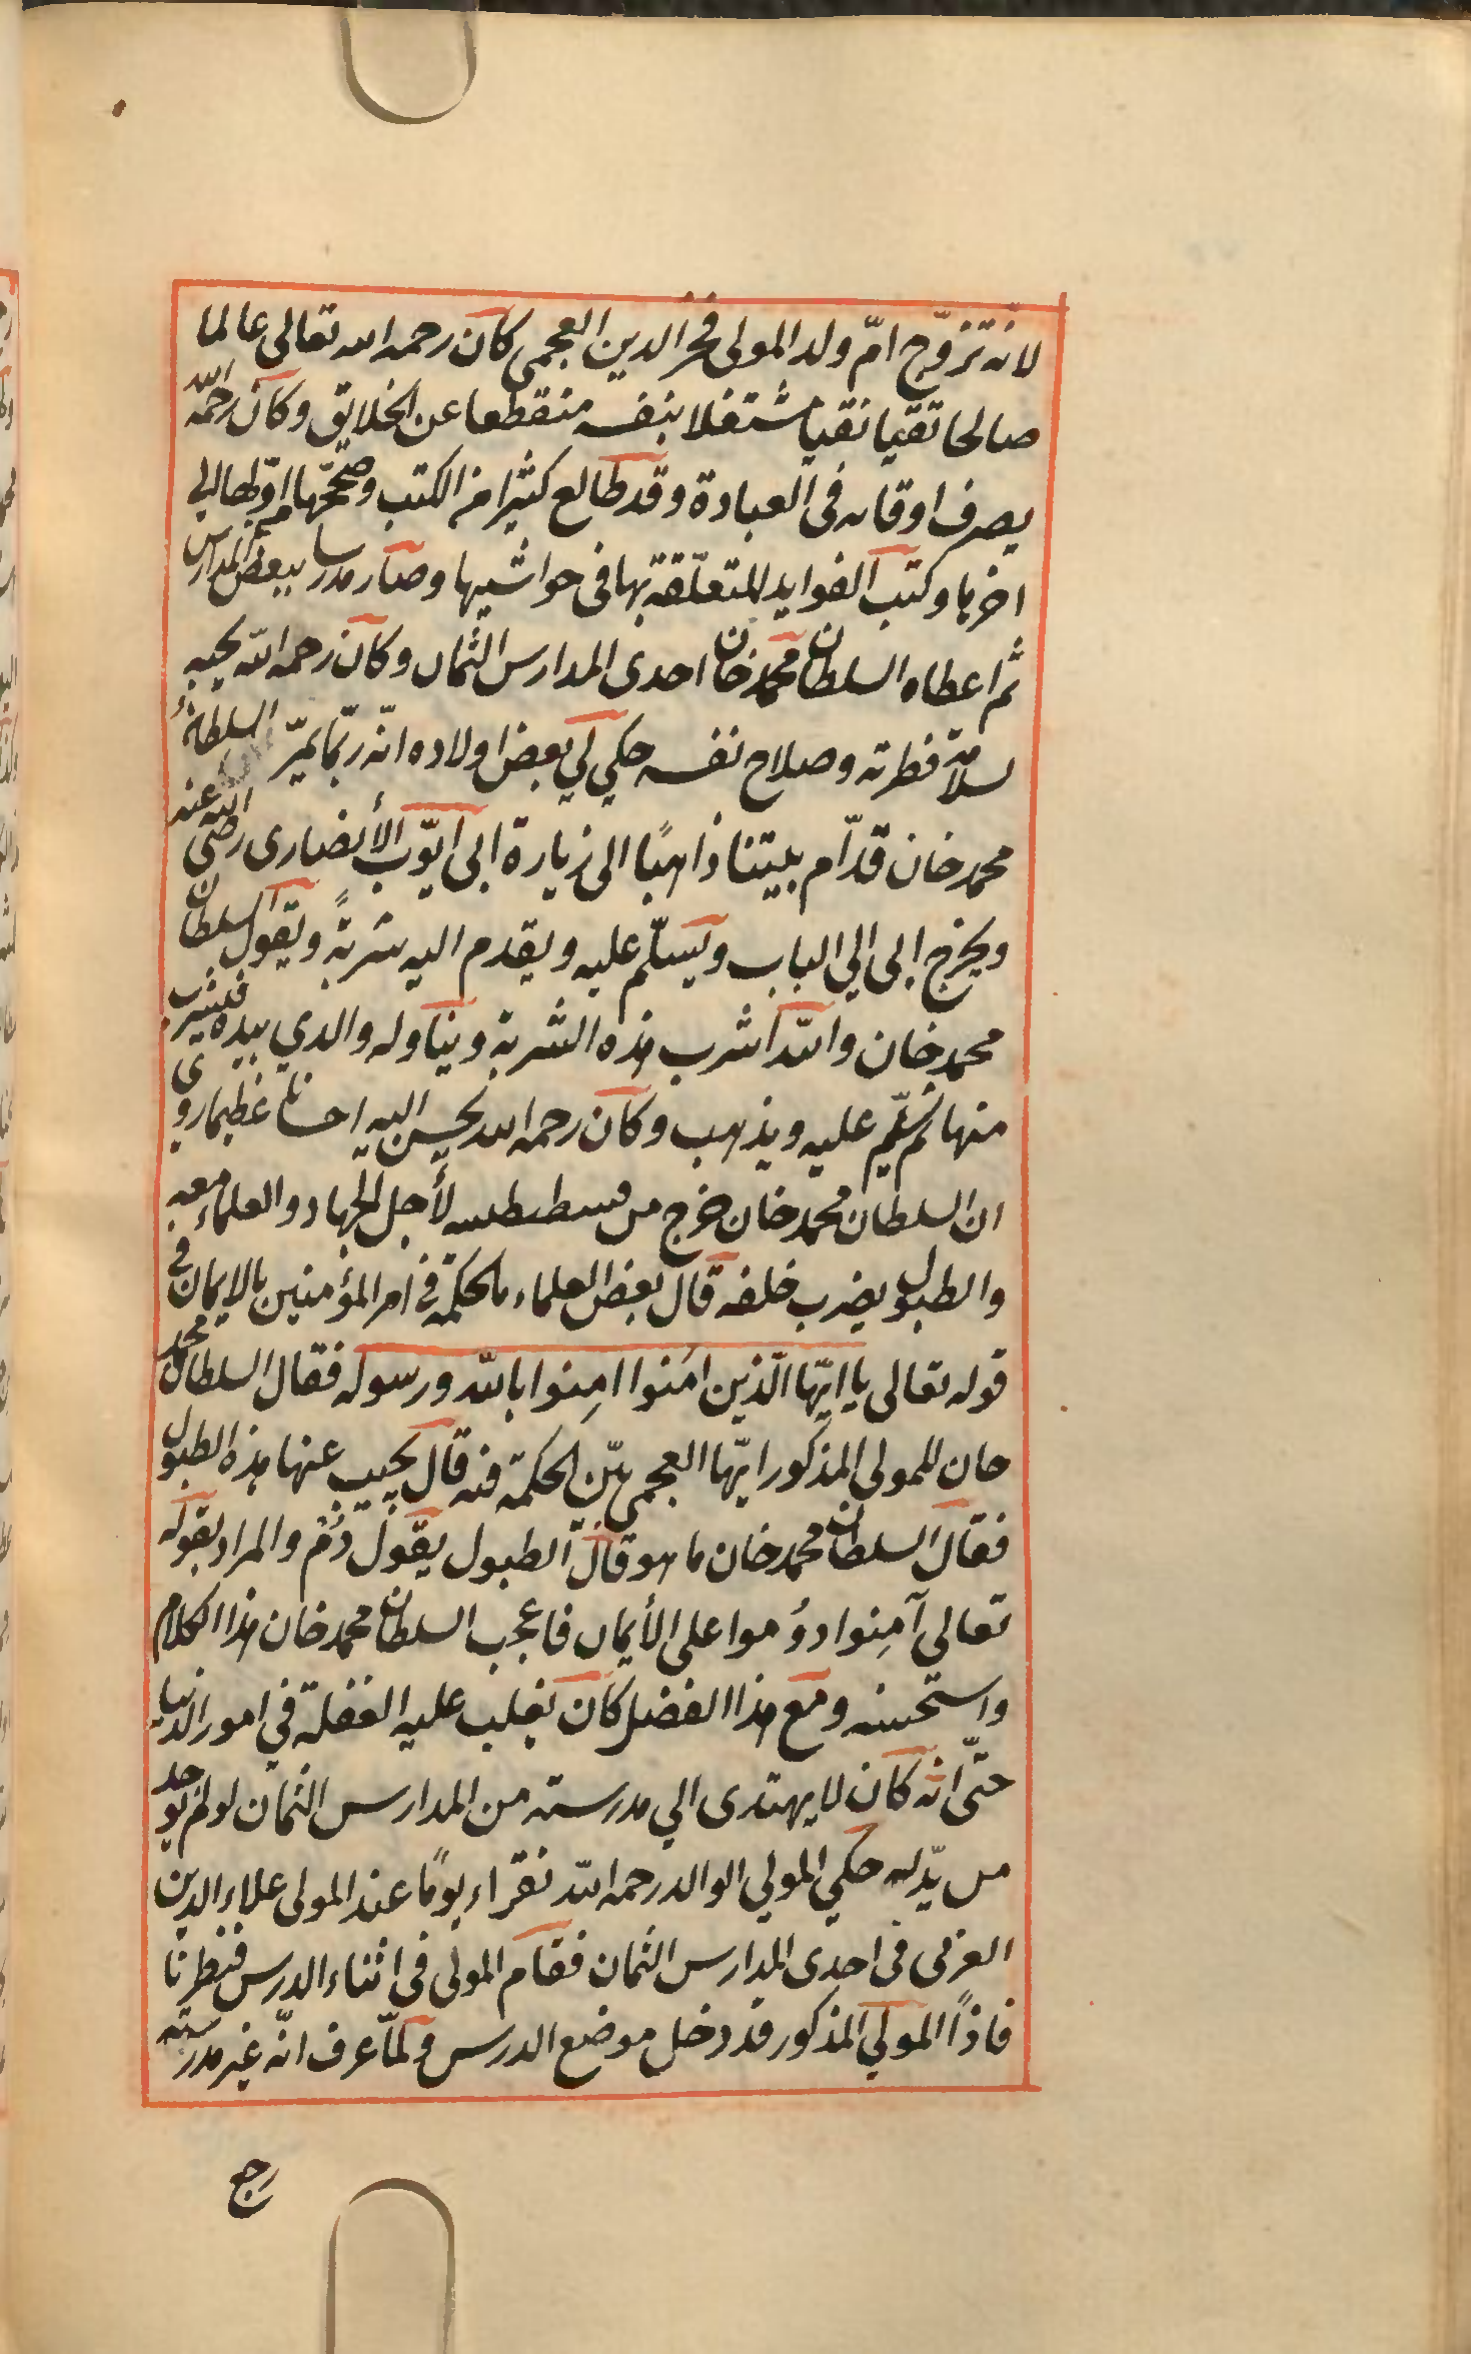 لانه تزوّج امّ ولد المولى فخر الدين العجمى كان رحمه الله تعالى عالما
صالحا تقيا نقيا مشتغلا بنفسه منقطعا عن الخلايق وكان رحمه الله
يصرف اوقاته فى العبادة وقد طالع كثيرا من الكتب وصححّها من اوّلها الى
اخرها وكتب الفوايد المتعلّقة بها فى حواشيها وصار مدرسا ببعض المدارس
ثم اعطاه السلطان محمد خان احدى المدارس الثمان وكان رحمه الله يحبه
لسلامة فطرته وصلاح نفسه حكي لي بعض اولاده انّه ربّما يمرّ السلطان
محمد خان قدّام بيتنا ذاهبًا الى زيارة ابى ايّوب الأنصارى رضى الله عنه
ويخرج ابى الي الباب ويسلّم عليه ويقدم اليه شربةً ويقول السلطان
محمد خان والله اشرب هذه الشربة ويناوله والدي بيده فيشرب
منها ثم يسلّم عليه ويذهب وكان رحمه الله يحسن اليه احسانا عظيما روى
ان السلطان محمد خان خرج من قسطنطينيه لأجل الجهاد والعلماء معه
والطبول يضرب خلفه قال بعض العلماء ما الحكمة في امر المؤمنين بالايمان في
قوله تعالى يا ايّها الّذين امَنوا امِنوا بالله ورسوله فقال السلطان محمد
خان للمولى المذكور ايّها العجمى بيّن الحكمة فيه قال يجيب عنها هذه الطبول
فقال السلطان محمد خان ما هو قال الطبول يقول دُم دُم والمراد بقوله
تعالى آمِنوا دوُموا على الأيمان فاعجب السلطان محمد خان هذا الكلام
واستحسنه ومع هذا الفضل كان يغلب عليه الغفلة في امور الدنيا
حتّى انّه كان لا يهتدى الي مدرسته من المدارس الثمان لو لم يوجد
من يدّله حكي المولي الوالد رحمه الله نقراء يومًا عند المولى علاء الدين
العربى فى احدى المدارس الثمان فقام المولى فى اثناء الدرس فنظرنا
فاذًا المولي المذكور قد دخل موضع الدرس ولمّا عرف انّه غير مدرسته
رجع